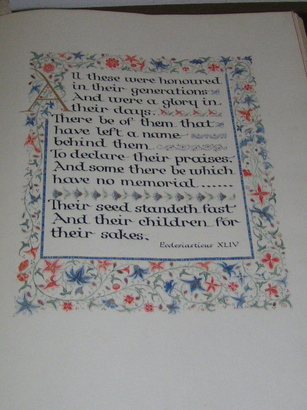 All these were honoured
in their generations
And were a glory in
their days.
There be of them that
have left a name
behind them
To declare their praises.
And some there be which
have no memorial ......
Their seed standeth fast
And their children for
their sakes.
Ecclesiasticus XLIV